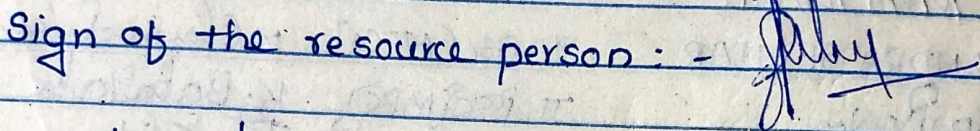 Sign of the resource person : -